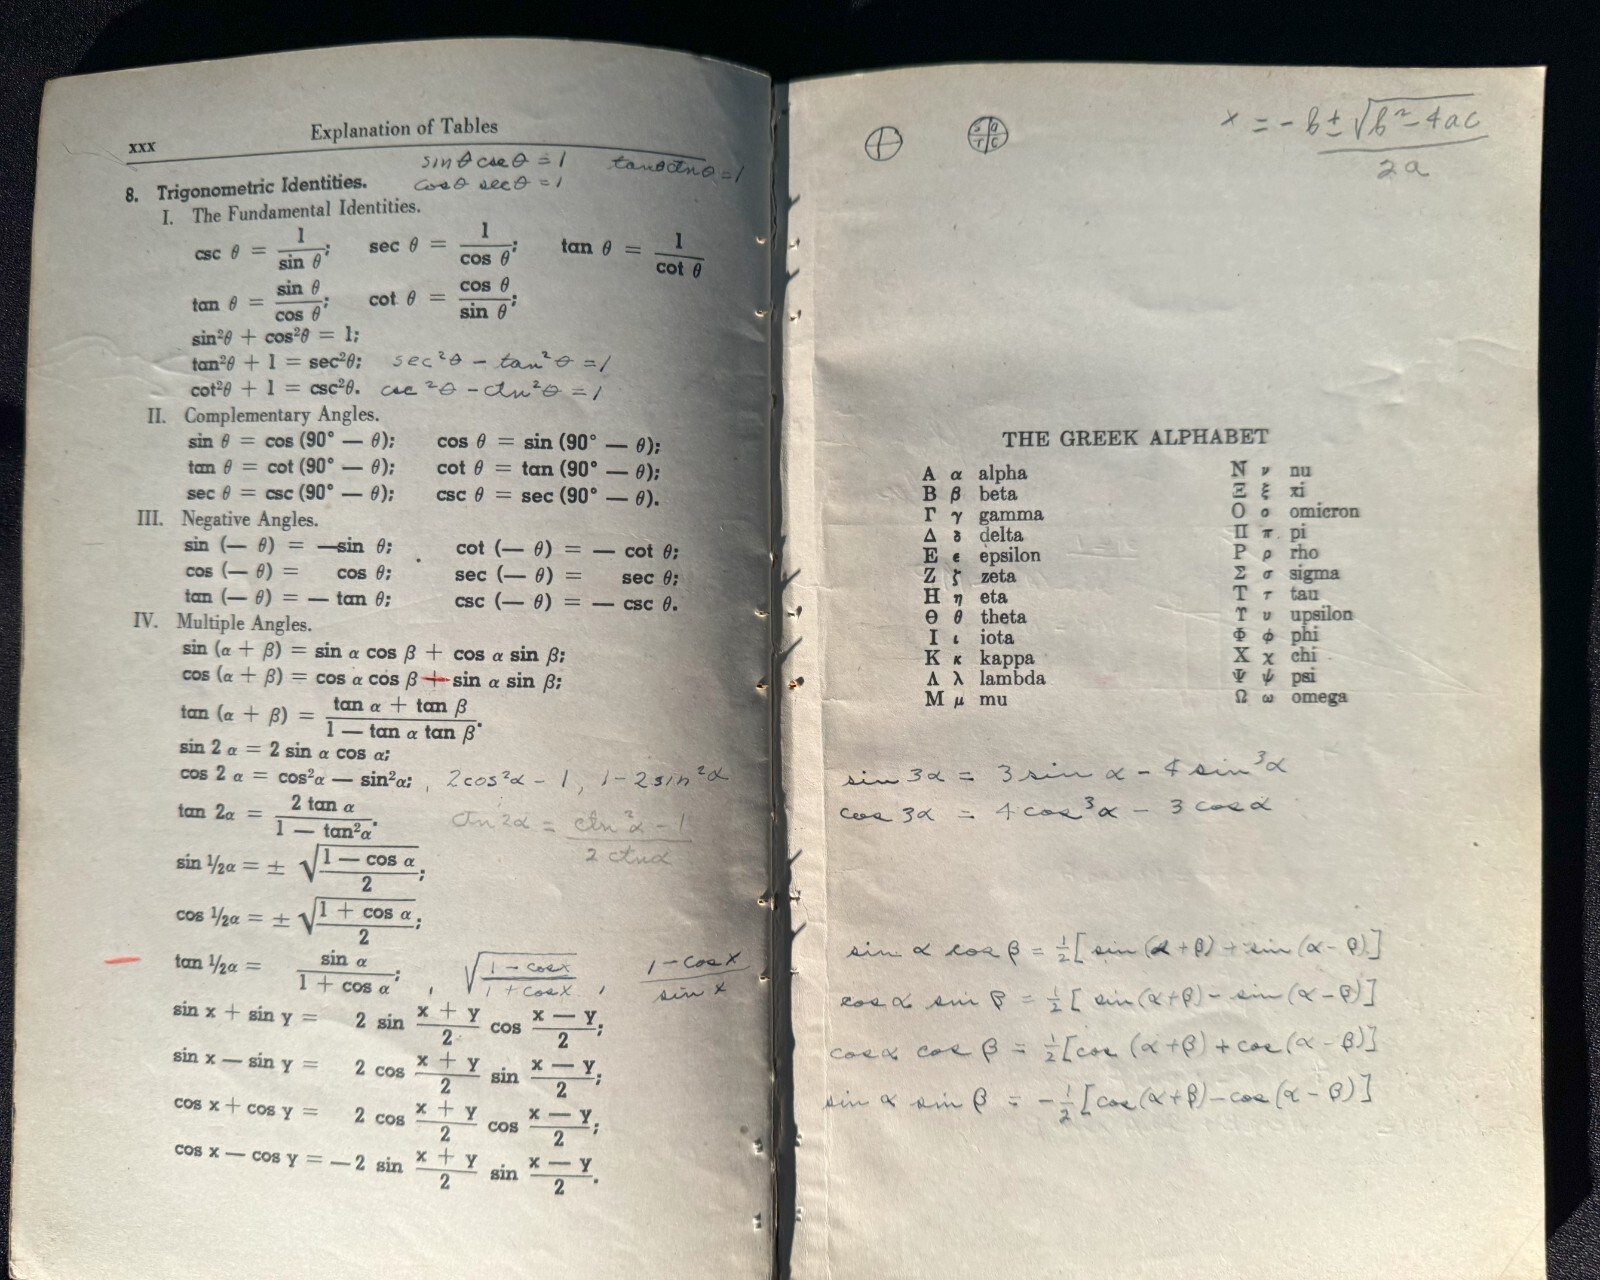 xxx Explanation of Tables
sin θ csc θ = 1 tan θ ctn θ = 1
cos θ sec θ = 1
8. Trigonometric Identities.
I. The Fundamental Identities.
csc θ = 1/sin θ; sec θ = 1/cos θ; tan θ = 1/cot θ
tan θ = sin θ/cos θ; cot θ = cos θ/sin θ;
sin²θ + cos²θ = 1;
tan²θ + 1 = sec²θ; sec²θ - tan²θ = 1
cot²θ + 1 = csc²θ. csc²θ - ctn²θ = 1
II. Complementary Angles.
sin θ = cos (90° — θ); cos θ = sin (90° — θ);
tan θ = cot (90° — θ); cot θ = tan (90° — θ);
sec θ = csc (90° — θ); csc θ = sec (90° — θ).
III. Negative Angles.
sin (— θ) = —sin θ; cot (— θ) = — cot θ;
cos (— θ) = cos θ; sec (— θ) = sec θ;
tan (— θ) = — tan θ; csc (— θ) = — csc θ.
IV. Multiple Angles.
sin (α + β) = sin α cos β + cos α sin β;
cos (α + β) = cos α cos β — sin α sin β;
tan (α + β) = (tan α + tan β)/(1 — tan α tan β).
sin 2 α = 2 sin α cos α;
cos 2 α = cos²α — sin²α; , 2cos²α - 1, 1 - 2 sin²α
tan 2α = 2 tan α/(1 — tan²α). ctn 2α = (ctn²α - 1)/(2 ctnα)
sin 1/2α = ± √((1 — cos α)/2);
cos 1/2α = ± √((1 + cos α)/2);
tan 1/2α = sin α/(1 + cos α); , √((1 - cosx)/(1 + cosx)) , (1 - cosx)/(sin x)
sin x + sin y = 2 sin (x + y)/2 cos (x — y)/2;
sin x — sin y = 2 cos (x + y)/2 sin (x — y)/2;
cos x + cos y = 2 cos (x + y)/2 cos (x — y)/2;
cos x — cos y = —2 sin (x + y)/2 sin (x — y)/2.
S A
T C
x = -b ± √(b² - 4ac)/2a
THE GREEK ALPHABET
Α α alpha
Β β beta
Γ γ gamma
Δ δ delta
Ε ε epsilon
Ζ ζ zeta
Η η eta
Θ θ theta
Ι ι iota
Κ κ kappa
Λ λ lambda
Μ μ mu
Ν ν nu
Ξ ξ xi
Ο ο omicron
Π π pi
Ρ ρ rho
Σ σ sigma
Τ τ tau
Υ υ upsilon
Φ φ phi
Χ χ chi
Ψ ψ psi
Ω ω omega
sin 3α = 3 sin α - 4 sin³α
cos 3α = 4 cos³α - 3 cos α
sin α cos β = ½[sin (α+β) + sin (α-β)]
cos α sin β = ½[sin (α+β) - sin (α-β)]
cos α cos β = ½[cos (α+β) + cos (α-β)]
sin α sin β = -½[cos (α+β) - cos (α-β)]